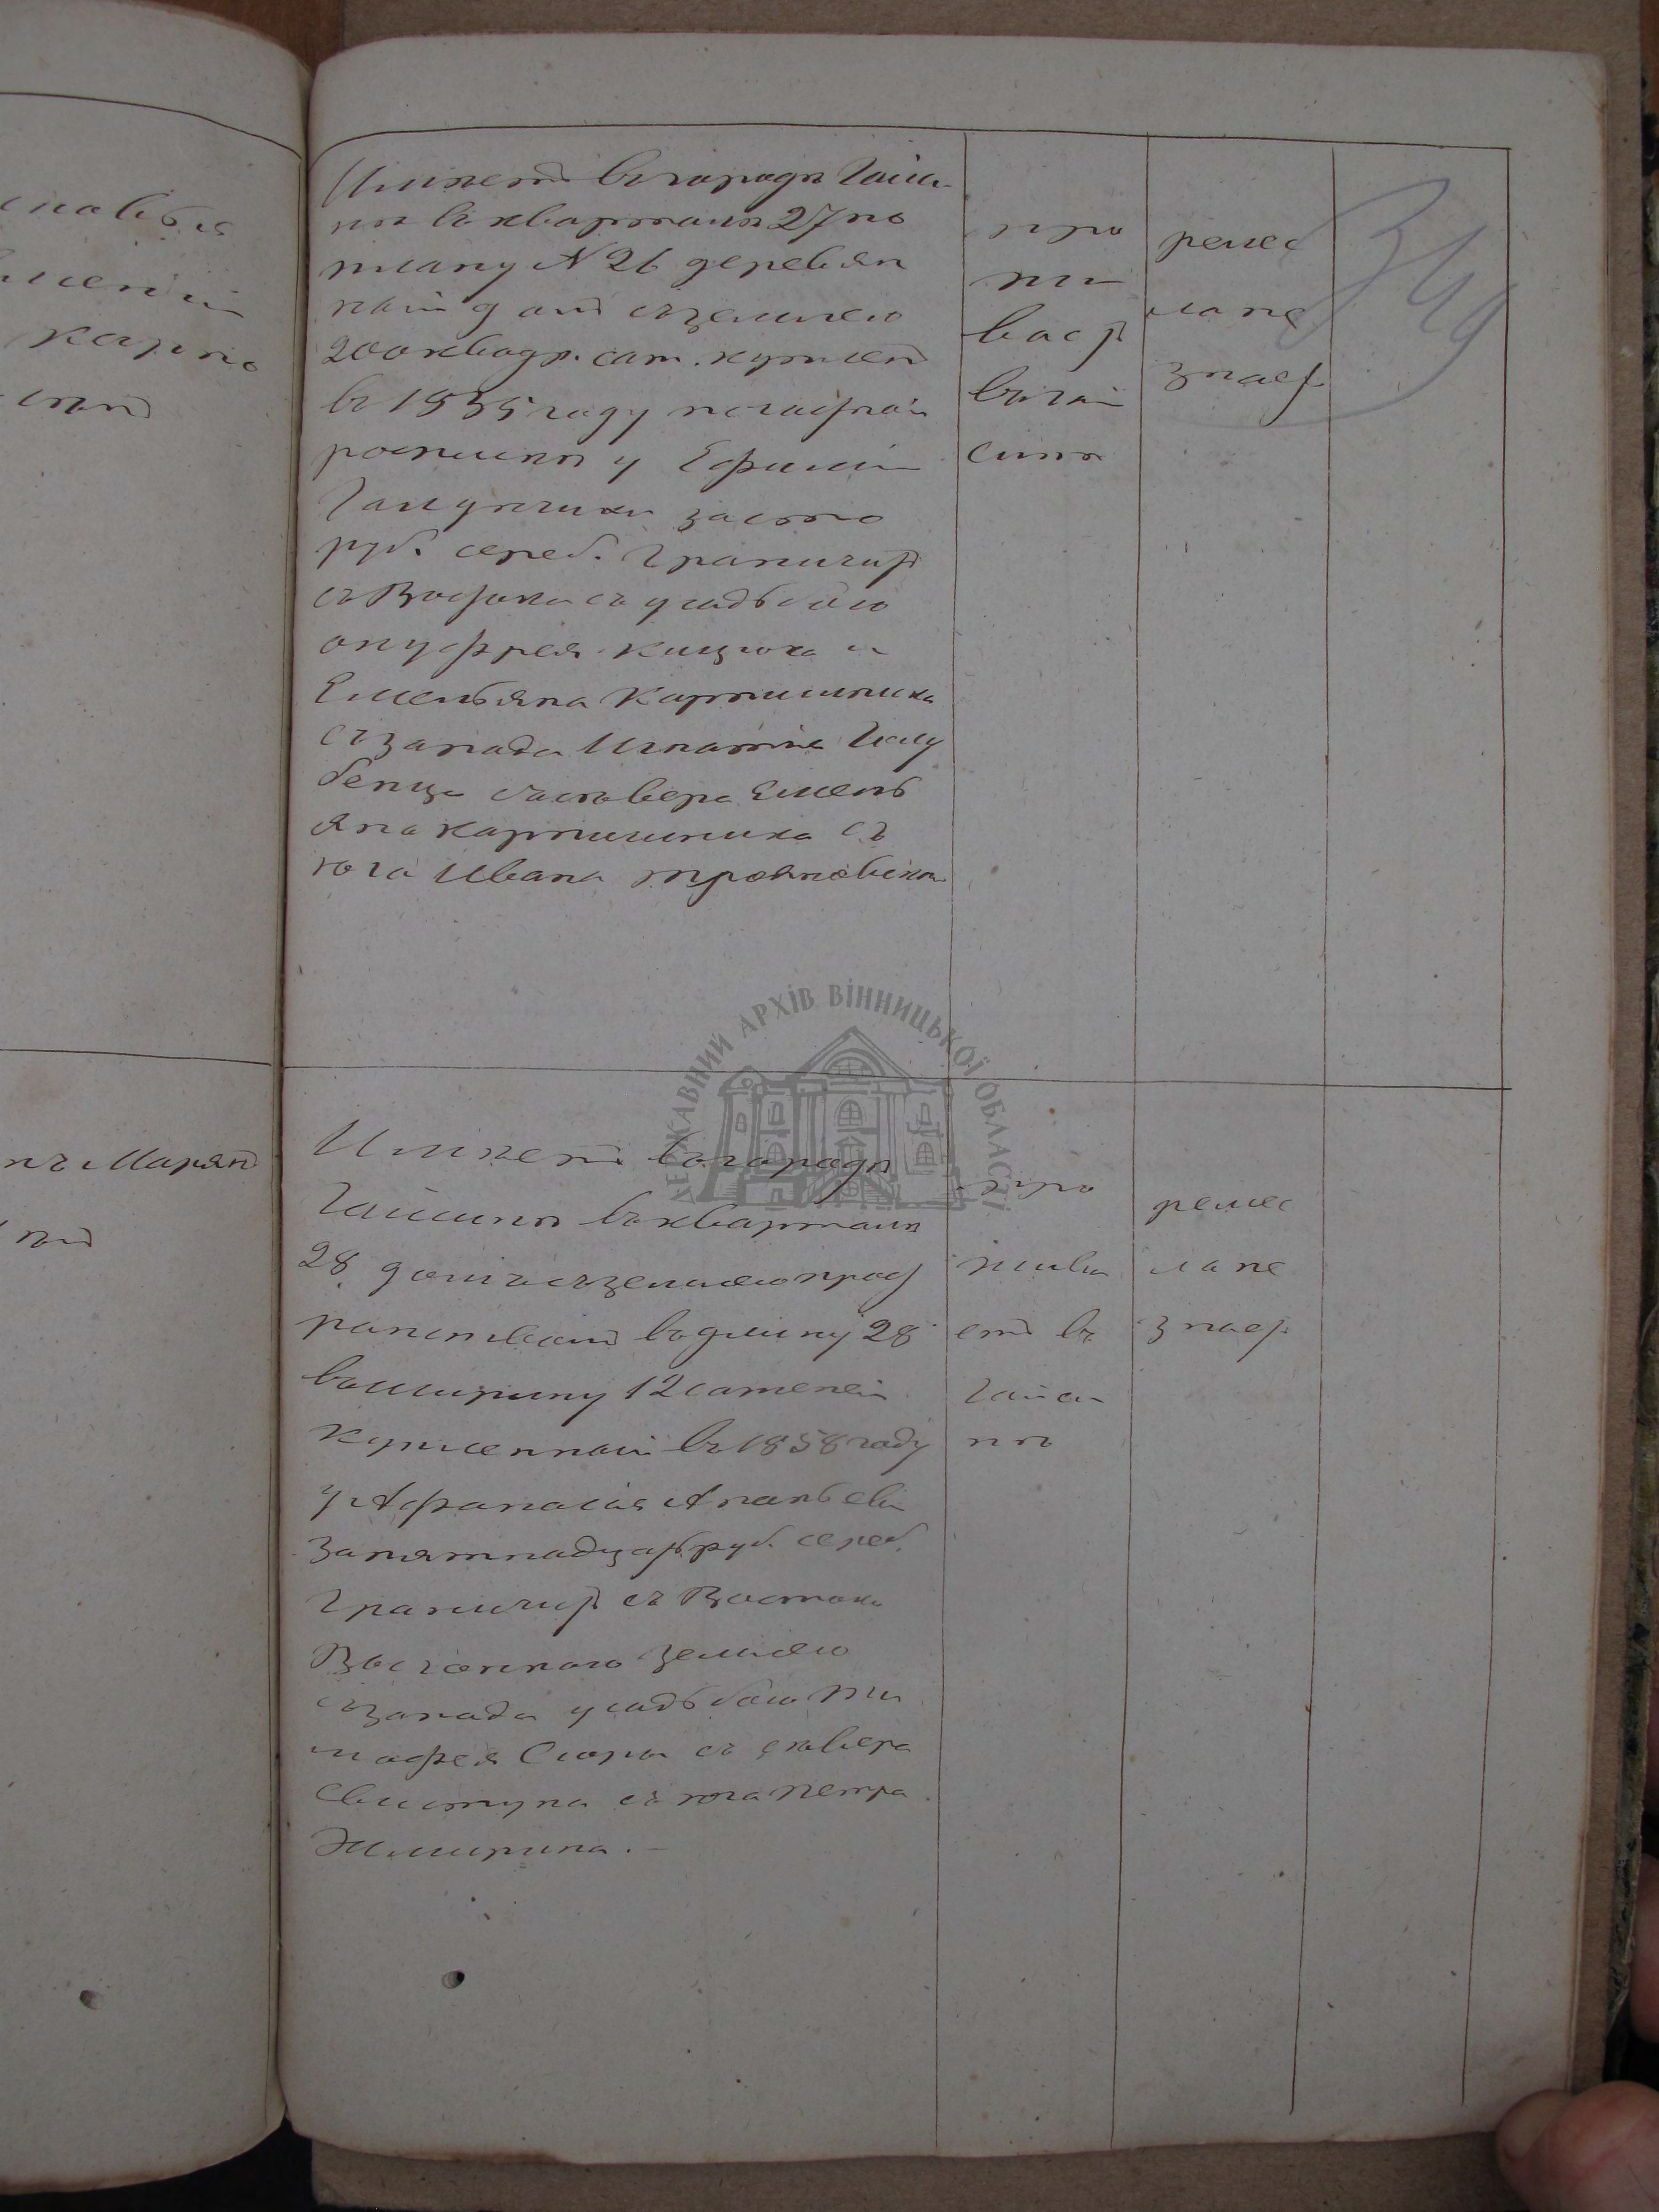 славья
карпо
нъ Марян
Имѣетъ въ городѣ Гайси
нѣ въ квартали 27 по
плану N 26 деревян
ной домъ съ землею
200 квадр. саж. купленъ
въ 1855 году по частной
росписки у Ефиміи
за сто
руб. сереб. граничитъ
съ Востока съ усадьбою
онуфрея кицюка и
Емельяна Картишника
съ запада Игнатия Голу
бенца съ севера Емель
яна картишника съ
юга Ивана трояновска
про
жи
ваетъ
въ гай
синѣ
ремес
ла не
знает
349
Имѣетъ въ городѣ
Гайсинѣ въ квартали
28 домъ съ землею прост
ранствомъ въ длину 28
въ ширину 12 саженей
купленной въ 1858 году
у Афанасия Ананьева
за пятнадцать руб. сереб.
граничитъ съ Востока
Выгонною землею
съ запада усадьбою Ти
мофея Скоры съ севера
Свистуна съ юга Петра
про
жива
етъ въ
Гайси
нѣ
ремес
ла не
знает
ДЕРЖАВНИЙ АРХІВ ВІННИЦЬКОЇ ОБЛАСТІ